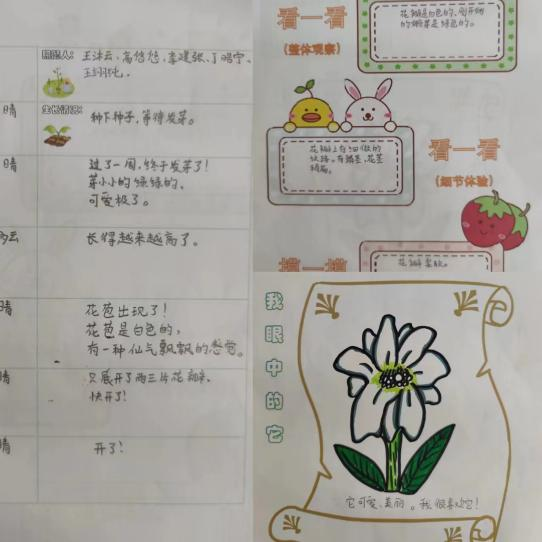 照顾人：王沐云、高信怡、李建张、丁皓宁、
晴
生长情况：
种下种子，等待发芽。
晴
过了一周，终于发芽了！
芽小小的绿绿的，
可爱极了。
多云
长得越来越高了。
晴
花苞出现了！
花苞是白色的，
有一种仙气飘飘的感觉。
晴
只展开了两三片花瓣，
快开了！
晴
开了！
看一看
(整体观察)
花瓣是白色的，刚开始
的嫩芽是绿色的。
看一看
(细节体验)
花瓣上有细微的
纹路。有
摸一摸
花瓣柔软。
我眼中的它
它可爱、美丽。我很喜欢它！